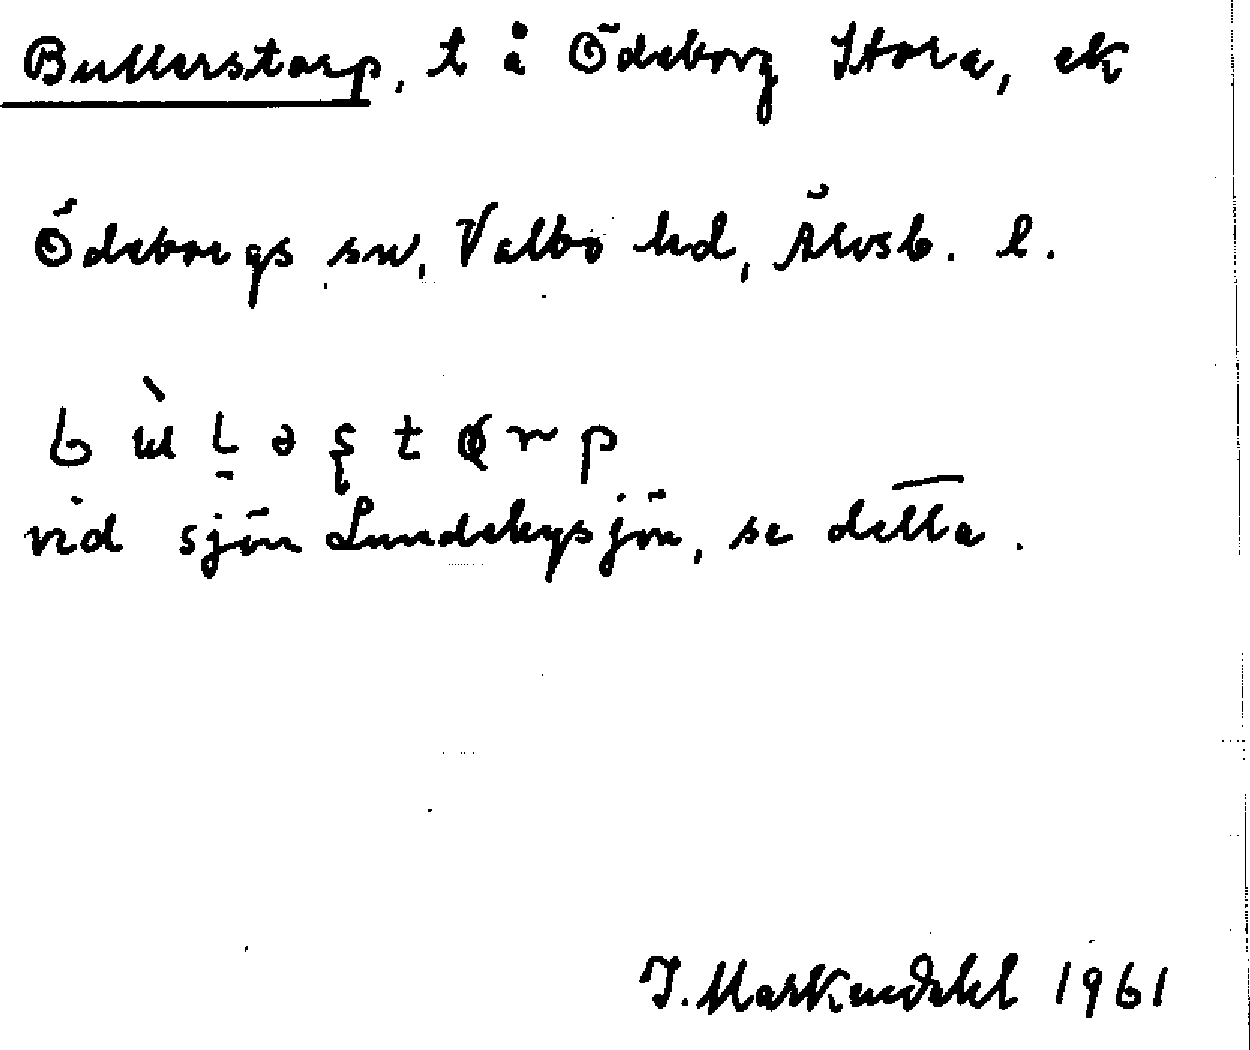 Bullerstorp, t å Ödeborg Stora, ek
Ödeborgs sn, Valbo hd, Älvsb. l.
vid sjön Lundebysjön, se detta.
1961